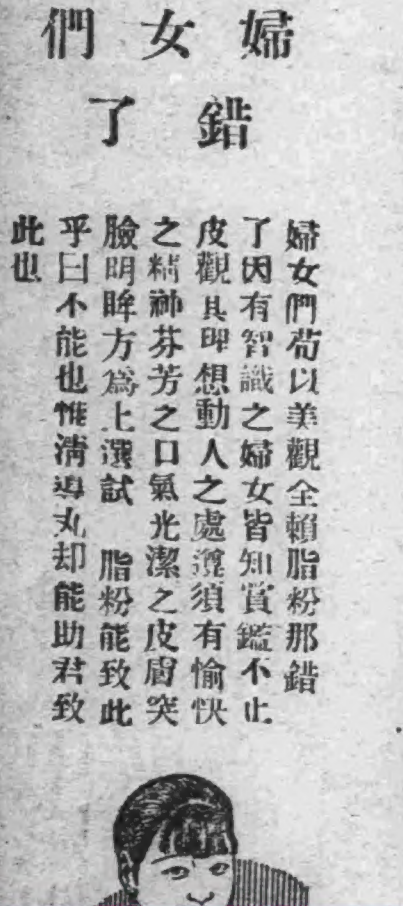 婦女們
錯了
婦女們苟以美觀全賴脂粉那錯
了因有智識之婦女皆知賞鑑不止
皮觀其思想動人之處還須有愉快
之精神芬芳之口氣光潔之皮膚突
臉明眸方爲上選試 脂粉能致此
乎曰不能也惟清導丸却能助君致
此也